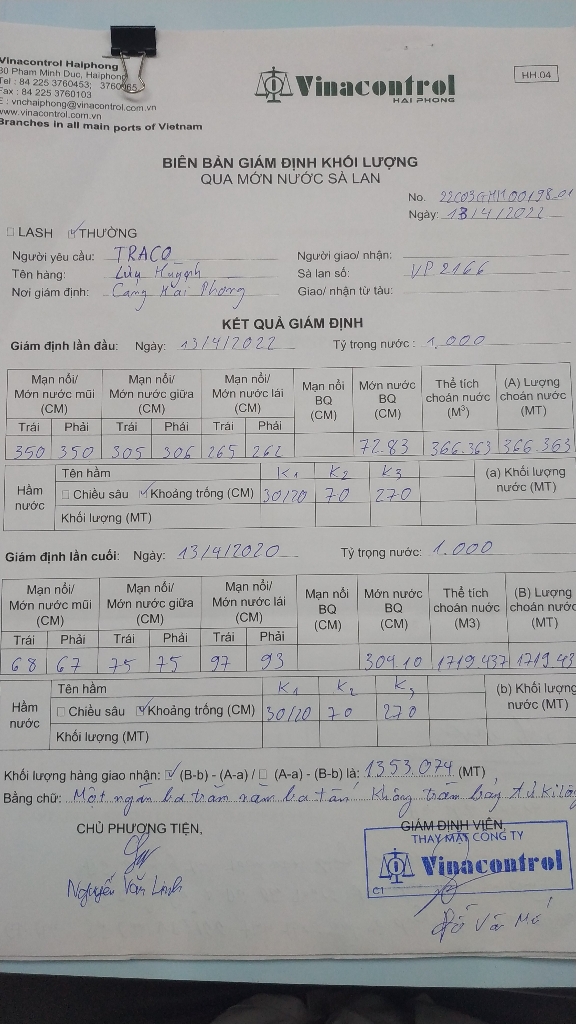 Vinacontrol Haiphong
80 Pham Minh Duc, Haiphong
Tel : 84 225 3760453; 3760965
Fax : 84 225 3760103
E : vnchaiphong@vinacontrol.com.vn
www.vinacontrol.com.vn
Branches in all main ports of Vietnam
Vinacontrol
HAI PHONG
HH.04
BIÊN BẢN GIÁM ĐỊNH KHỐI LƯỢNG
QUA MỚN NƯỚC SÀ LAN
No. 22C03GHH00198-01
Ngày: 13/4/2022
LASH THƯỜNG
Người yêu cầu: TRACO Người giao/ nhận:
Tên hàng: Lưu Huỳnh Sà lan số: VP 2166
Nơi giám định: Cảng Hải Phòng Giao/ nhận từ tàu:
KẾT QUẢ GIÁM ĐỊNH
Giám định lần đầu: Ngày: 13/4/2022 Tỷ trọng nước : 1,000
Mạn nổi/ Mớn nước mũi (CM) Mạn nổi/ Mớn nước giữa (CM) Mạn nổi/ Mớn nước lái (CM) Mạn nổi BQ (CM) Mớn nước BQ (CM) Thể tích choán nước (M³) (A) Lượng choán nước (MT)
Trái Phải Trái Phải Trái Phải
350 350 305 306 265 262 72.83 366.363 366.363
Hầm nước Tên hầm K1 K2 K3 (a) Khối lượng nước (MT)
Chiều sâu Khoảng trống (CM) 30/20 70 270
Khối lượng (MT)
Giám định lần cuối: Ngày: 13/4/2020 Tỷ trọng nước: 1.000
Mạn nổi/ Mớn nước mũi (CM) Mạn nổi/ Mớn nước giữa (CM) Mạn nổi/ Mớn nước lái (CM) Mạn nổi BQ (CM) Mớn nước BQ (CM) Thể tích choán nước (M3) (B) Lượng choán nước (MT)
Trái Phải Trái Phải Trái Phải
68 67 75 75 97 93 304.10 1719.437 1719.43
Hầm nước Tên hầm K1 K2 K3 (b) Khối lượng nước (MT)
Chiều sâu Khoảng trống (CM) 30/20 70 270
Khối lượng (MT)
Khối lượng hàng giao nhận: (B-b) - (A-a) / (A-a) - (B-b) là: 1353.074 (MT)
Bằng chữ: Một ngàn ba trăm năm ba tấn Không trăm bảy tư kilô
CHỦ PHƯƠNG TIỆN, GIÁM ĐỊNH VIÊN,
THAY MẶT CÔNG TY
Vinacontrol
C1
Nguyễn Văn Linh